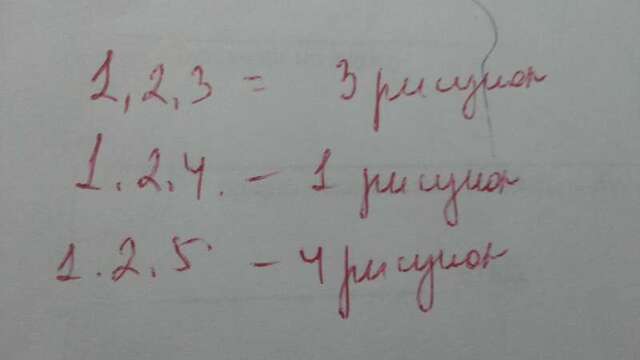 1, 2, 3 = 3 рисунок
1. 2. 4. - 1 рисунок
1. 2. 5. - 4 рисунок